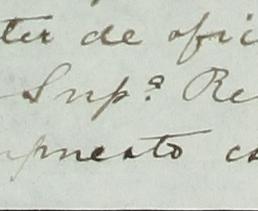 ter de ofi
Snp.ª Re
puesto c